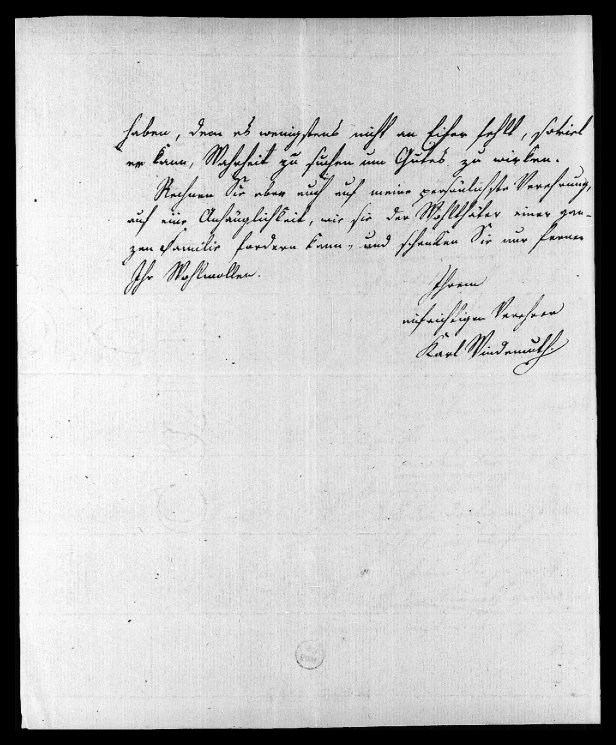 haben, dem es wenigstens nicht an Eifer fehlt, soviel
er kann, Wahrheit zu suchen um Gutes zu wirken.
Rechnen Sie aber auch auf meine persönlichste Verehrung,
auf eine Anhänglichkeit, wie sie der Wohlthäter einer gan-
zen Familie fordern kann, und schenken Sie mir ferner
Ihr Wohlwollen.
Ihrem
aufrichtigen Verehrer
Karl Windemuth.